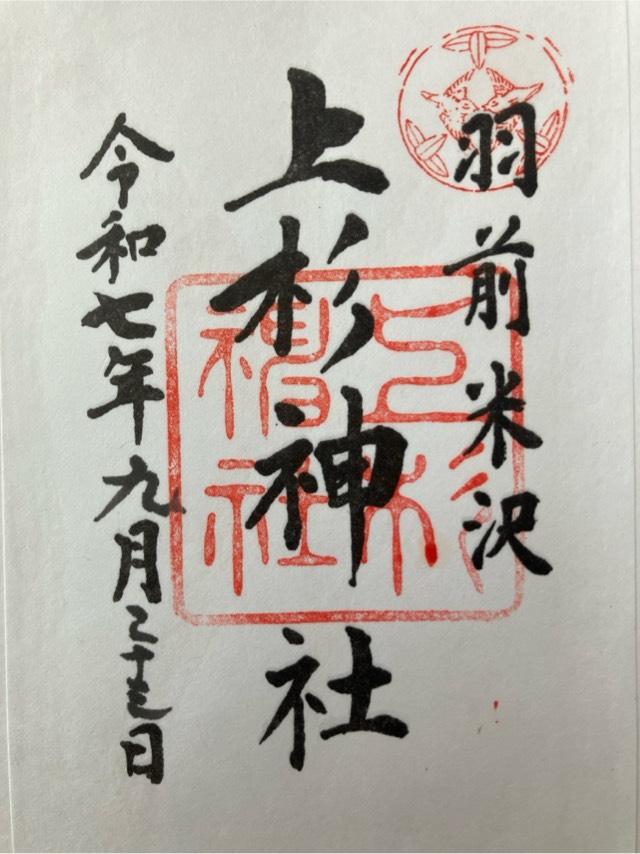 羽前米沢
上杉神社
令和七年九月 日
上杉
神社